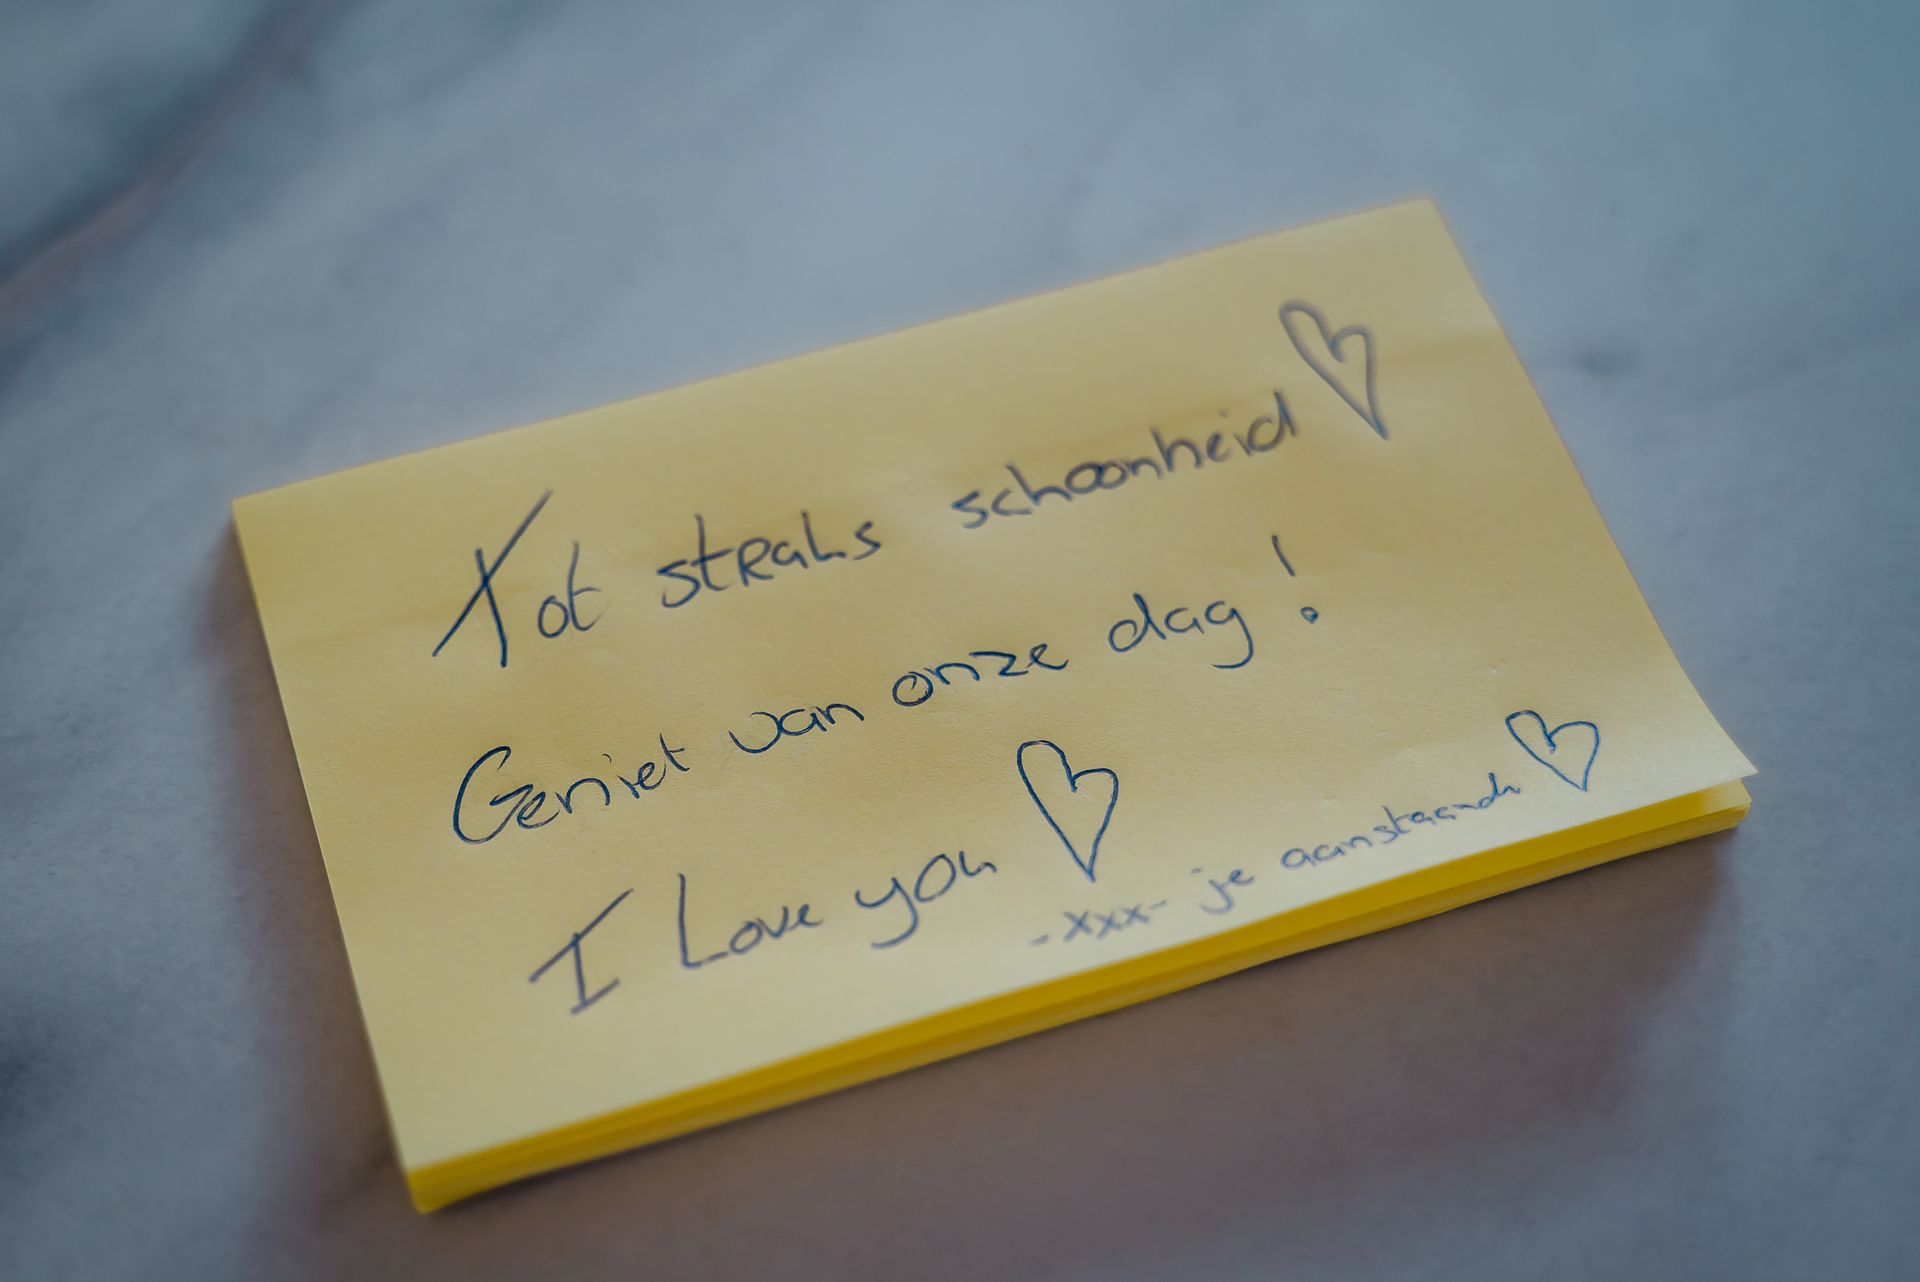 Tot straks schoonheid ♡
Geniet van onze dag!
I Love you ♡
-xxx- je aanstaande ♡